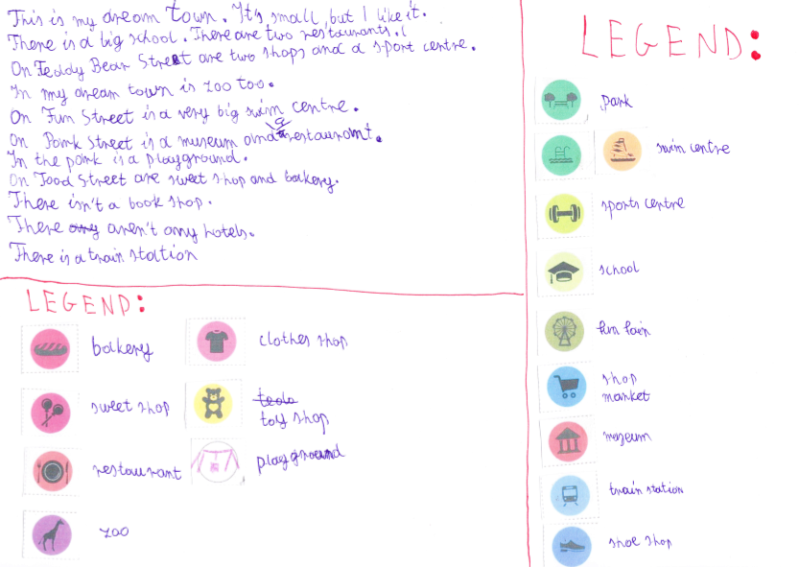 This is my dream town. It's small, but I like it.
There is a big school. There are two restaurants.
On Teddy Bear Street are two shops and a sport centre.
In my dream town is zoo too.
On Fun Street is a very big swim centre.
On Park Street is a museum and a restaurant.
In the park is a playground.
On Food Street are sweet shop and bakery.
There isn't a book shop.
There aren't any hotels.
There is a train station
LEGEND:
bakery
clothes shop
sweet shop
toy shop
restaurant
playground
zoo
LEGEND:
park
swim centre
sports centre
school
fun fair
shop
market
museum
train station
shoe shop